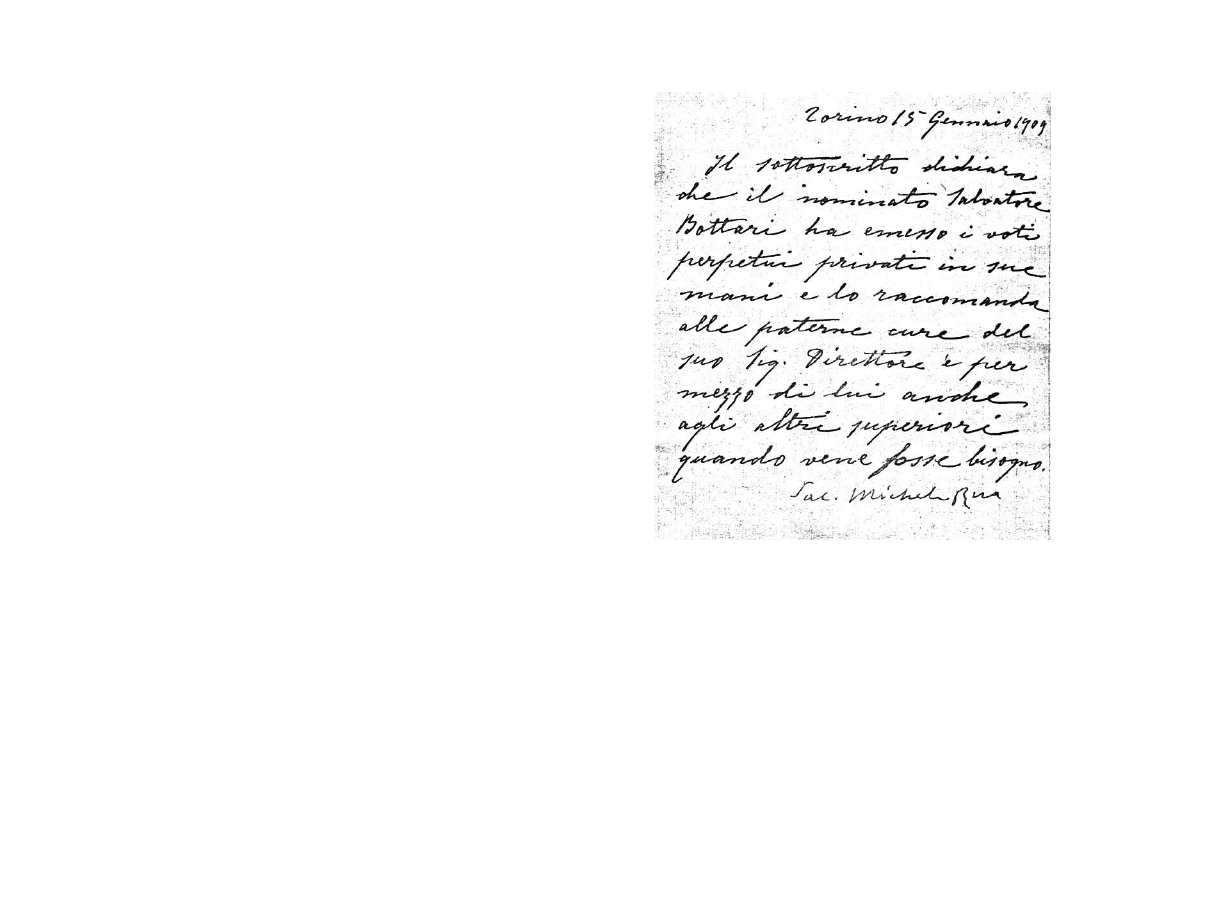 Torino 15 Gennaio 1909
Il sottoscritto dichiara
che il nominato Salvatore
Bottari ha emesso i voti
perpetui privati in sue
mani e lo raccomanda
alle paterne cure del
suo Sig. Direttore e per
mezzo di lui anche
agli altri superiori
quando vene fosse bisogno.
Sac. Michele Rua